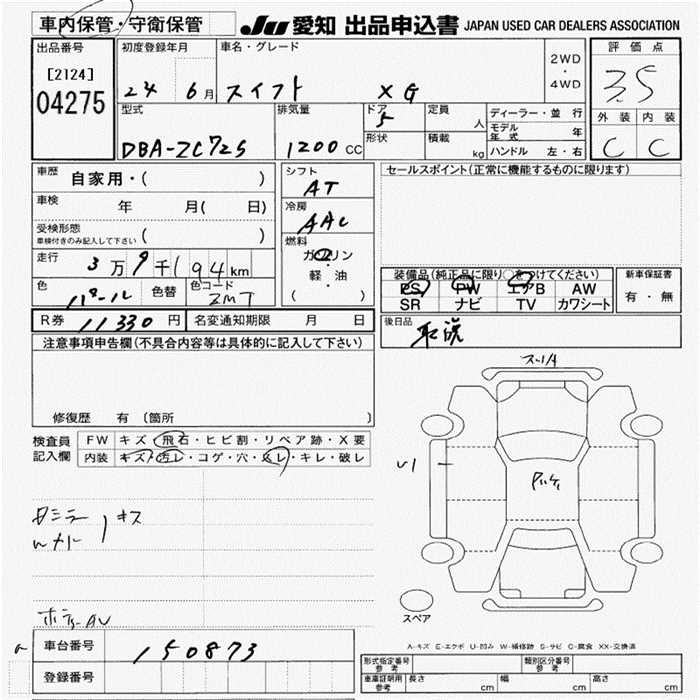 車内保管・守衛保管 JU 愛知 出品申込書 JAPAN USED CAR DEALERS ASSOCIATION
出品番号
[2124]
04275
初度登録年月
24 6月
車名・グレード
スイフト XG
2WD
・
4WD
評価点
3.5
外装 内装
C C
型式
DBA-ZC72S
排気量
1200 CC
ドア
5
形状
定員
人
積載
kg
ディーラー・並行
モデル年式 年
ハンドル 左・右
車歴
自家用・( )
車検
年 月( 日)
受検形態
車検付きのみ記入して下さい ( )
走行
3万9千194km
色
パール
色替
色コード
ZMT
シフト
AT
冷房
AAC
燃料
ガソリン
・
軽・油
( )
セールスポイント(正常に機能するものに限ります)
装備品(純正品に限り○をつけてください)
PS PW エアB AW
SR ナビ TV カワシート
新車保証書
有・無
R券 11330円 名変通知期限 月 日
後日品
取説
注意事項申告欄(不具合内容等は具体的に記入して下さい)
修復歴 有 (箇所 )
検査員
記入欄
FW キズ・飛石・ヒビ割・リペア跡・X要
内装 キズ・汚レ・コゲ・穴・スレ・キレ・破レ
キズ
U1
スペア
A-キズ E-エクボ U-凹み W-補修跡 S-サビ C-腐食 XX-交換済
車台番号
150873
登録番号
型式指定番号
参考
類別区分番号
参考
車庫証明用
参考
長さ cm
幅 cm
高さ cm